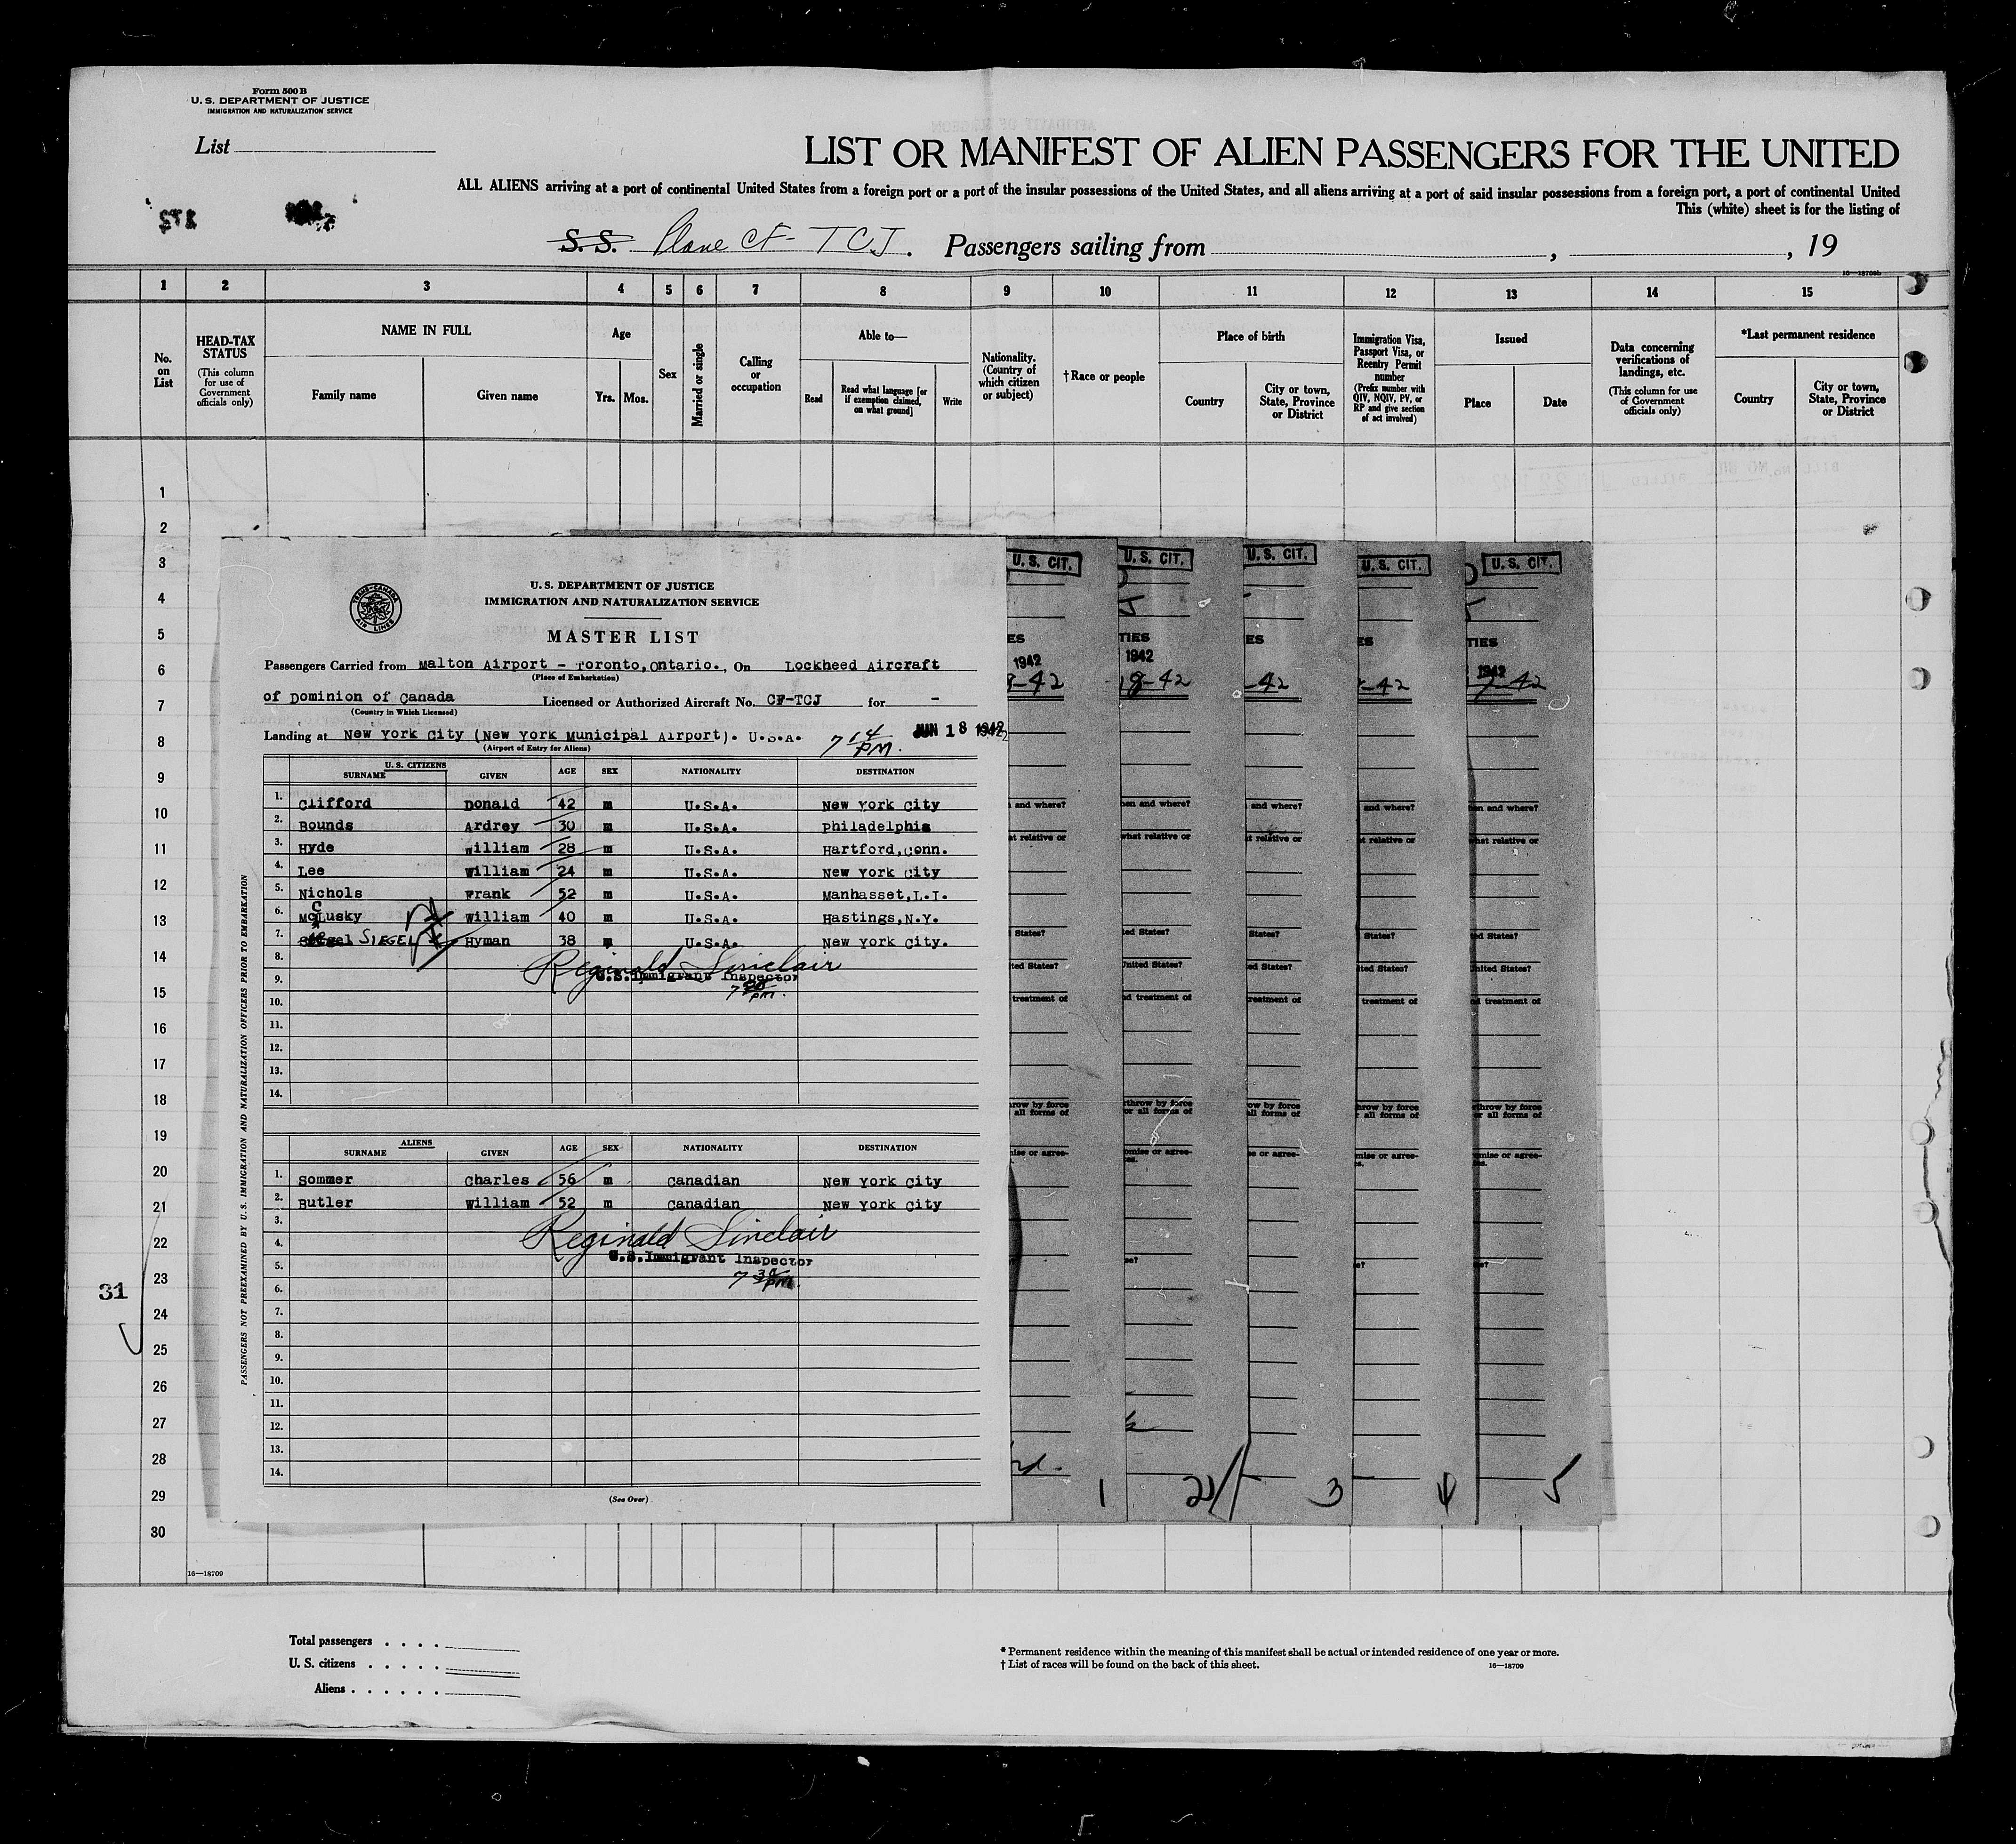 Form 500 B
U. S. DEPARTMENT OF JUSTICE
IMMIGRATION AND NATURALIZATION SERVICE
List
LIST OR MANIFEST OF ALIEN PASSENGERS FOR THE UNITED
ALL ALIENS arriving at a port of continental United States from a foreign port or a port of the insular possessions of the United States, and all aliens arriving at a port of said insular possessions from a foreign port, a port of continental United
This (white) sheet is for the listing of
S. S. Plane CF-TCJ. Passengers sailing from , , 19
16—18709b
1 2 3 4 5 6 7 8 9 10 11 12 13 14 15
No. on List
HEAD-TAX STATUS
(This column for use of Government officials only)
NAME IN FULL
Family name
Given name
Age
Yrs. Mos.
Sex
Married or single
Calling or occupation
Able to—
Read
Read what language [or if exemption claimed, on what ground]
Write
Nationality. (Country of which citizen or subject)
†Race or people
Place of birth
Country
City or town, State, Province or District
Immigration Visa, Passport Visa, or Reentry Permit number
(Prefix number with QIV, NQIV, PV, or RP and give section of act involved)
Issued
Place
Date
Data concerning verifications of landings, etc.
(This column for use of Government officials only)
*Last permanent residence
Country
City or town, State, Province or District
1
2
3
4
5
6
7
8
9
10
11
12
13
14
15
16
17
18
19
20
21
22
23
24
25
26
27
28
29
30
31
TRANS-CANADA AIR LINES
U. S. DEPARTMENT OF JUSTICE
IMMIGRATION AND NATURALIZATION SERVICE
MASTER LIST
Passengers Carried from Malton Airport - Toronto, Ontario., On Lockheed Aircraft
(Place of Embarkation)
of Dominion of Canada Licensed or Authorized Aircraft No. CF-TCJ for -
(Country in Which Licensed)
Landing at New York City (New York Municipal Airport). U.S.A. 7 14 PM. JUN 18 1942
(Airport of Entry for Aliens)
U. S. CITIZENS
SURNAME GIVEN AGE SEX NATIONALITY DESTINATION
1. Clifford Donald 42 m U.S.A. New York City
2. Bounds Ardrey 30 m U.S.A. Philadelphia
3. Hyde William 28 m U.S.A. Hartford, Conn.
4. Lee William 24 m U.S.A. New York City
5. Nichols Frank 52 m U.S.A. Manhasset, L.I.
6. McLusky C William 40 m U.S.A. Hastings, N.Y.
7. SIEGEL Hyman 38 m U.S.A. New York City.
8.
Reginald Sinclair
9. U.S. Immigrant Inspector
10.
11.
12.
13.
14.
ALIENS
SURNAME GIVEN AGE SEX NATIONALITY DESTINATION
1. Sommer Charles 56 m Canadian New York City
2. Butler William 52 m Canadian New York City
3.
4. Reginald Sinclair
5. U.S. Immigrant Inspector
6. 7 30 PM
7.
8.
9.
10.
11.
12.
13.
14.
(See Over)
PASSENGERS NOT PREEXAMINED BY U. S. IMMIGRATION AND NATURALIZATION OFFICERS PRIOR TO EMBARKATION
U. S. CIT. U. S. CIT. U. S. CIT. U. S. CIT. U. S. CIT.
ES TIES ES ES TIES
1942 1942 1942
8-42 18-42 -42 -42 -42
and where? and where? and where? and where? and where?
at relative or what relative or t relative or t relative or what relative or
States? ted States? States? States? ed States?
ted States? United States? ed States? ited States? United States?
treatment of d treatment of treatment of treatment of d treatment of
row by force throw by force ow by force hrow by force throw by force
all forms of or all forms of ll forms of all forms of or all forms of
mise or agree- omise or agree- e or agree- mise or agree- omise or agree-
1 2 3 4 5
16—18709
Total passengers . . . .
U. S. citizens . . . . .
Aliens . . . . . .
* Permanent residence within the meaning of this manifest shall be actual or intended residence of one year or more.
† List of races will be found on the back of this sheet.
16—18709